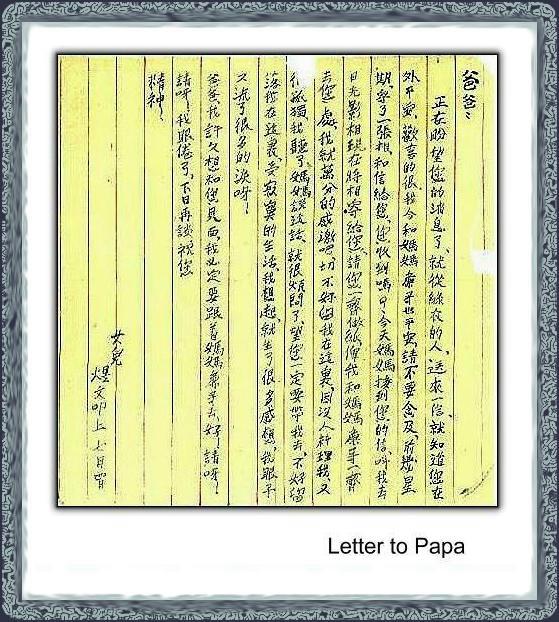 爸爸：
正在盼望您的消息了、就從綠衣的人、送來一信、就知道您在
外平安、歡喜的很、我今和媽媽 弟也平安、請不要念及、前幾星
期、寄了一張相、和信給您、您收到嗎？今天媽媽接到您的信、叫我去
影相、現在將相寄給您、請您一齊做紙俾我和媽媽 弟一齊
去您處、我就萬分的感激、切不好留我在這裏、因没人料理我、又
孤獨、我聽了媽媽說這話、就很煩悶了、望您一定要帶我去、不好留
落我在這裏、受寂寞的生活、我想起、就生了很多感想、我眼中
又流了很多的淚呀！
爸爸、我許久想和您見面、我必定要跟着媽媽 弟去、好！請呀！
請呀！我眼倦了、下日再談、祝您
精神！
女兒
煜文叩上 七日
Letter to Papa